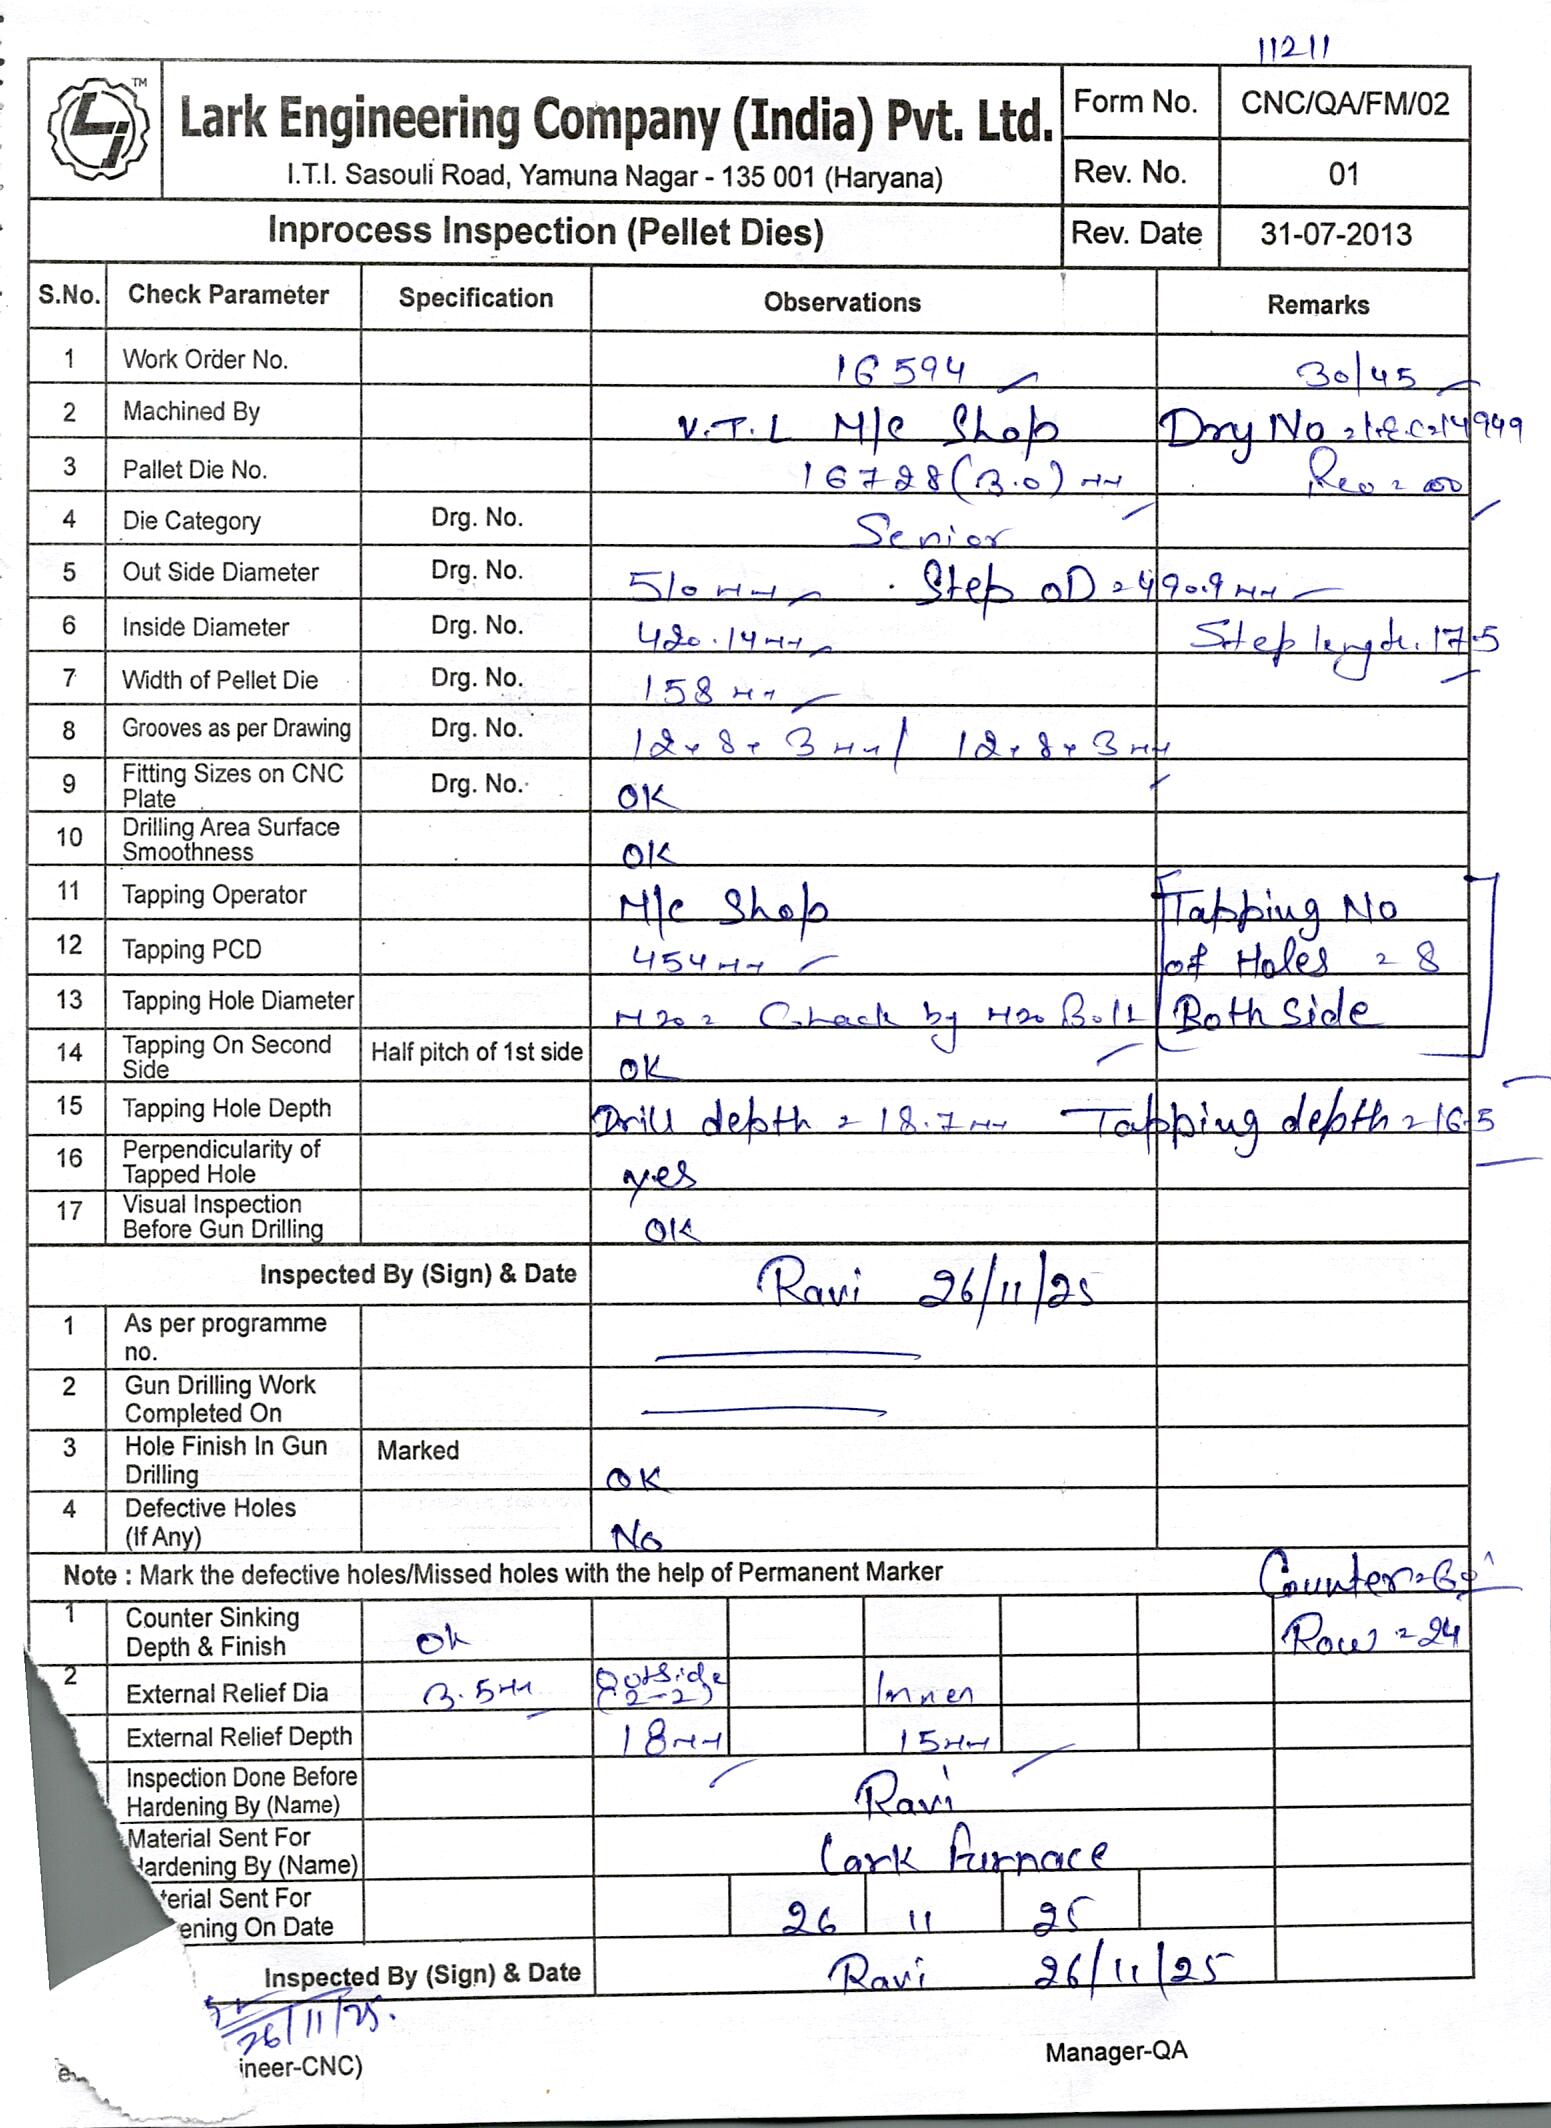 11211
TM
Lark Engineering Company (India) Pvt. Ltd.
I.T.I. Sasouli Road, Yamuna Nagar - 135 001 (Haryana)
Form No. CNC/QA/FM/02
Rev. No. 01
Inprocess Inspection (Pellet Dies)
Rev. Date 31-07-2013
S.No. Check Parameter Specification Observations Remarks
1 Work Order No. 16594 30/45
2 Machined By V.T.L M/c Shop Drg No
3 Pallet Die No. 16728 (3.0) mm Rev = 00
4 Die Category Drg. No. Senior
5 Out Side Diameter Drg. No. 510 mm Step OD = 490.9 mm
6 Inside Diameter Drg. No. 420.14 mm Step length. 17.5
7 Width of Pellet Die Drg. No. 158 mm
8 Grooves as per Drawing Drg. No. 12 x 8 x 3 mm / 12 x 8 x 3 mm
9 Fitting Sizes on CNC Plate Drg. No. OK
10 Drilling Area Surface Smoothness OK
11 Tapping Operator M/c Shop Tapping No
12 Tapping PCD 454 mm of Holes = 8
13 Tapping Hole Diameter M20 = Check by M20 Bolt Both Side
14 Tapping On Second Side Half pitch of 1st side OK
15 Tapping Hole Depth Drill depth = 18.7 mm Tapping depth = 16.5
16 Perpendicularity of Tapped Hole yes
17 Visual Inspection Before Gun Drilling OK
Inspected By (Sign) & Date Ravi 26/11/25
1 As per programme no.
2 Gun Drilling Work Completed On
3 Hole Finish In Gun Drilling Marked OK
4 Defective Holes (If Any) No
Note : Mark the defective holes/Missed holes with the help of Permanent Marker Counter = 60°
1 Counter Sinking Depth & Finish Ok Row = 24
2 External Relief Dia 3.5 mm Outside (2-2) Inner
External Relief Depth 18 mm 15 mm
Inspection Done Before Hardening By (Name) Ravi
Material Sent For Hardening By (Name) Lark Furnace
terial Sent For ening On Date 26 11 25
Inspected By (Sign) & Date Ravi 26/11/25
26/11/25.
ineer-CNC) Manager-QA